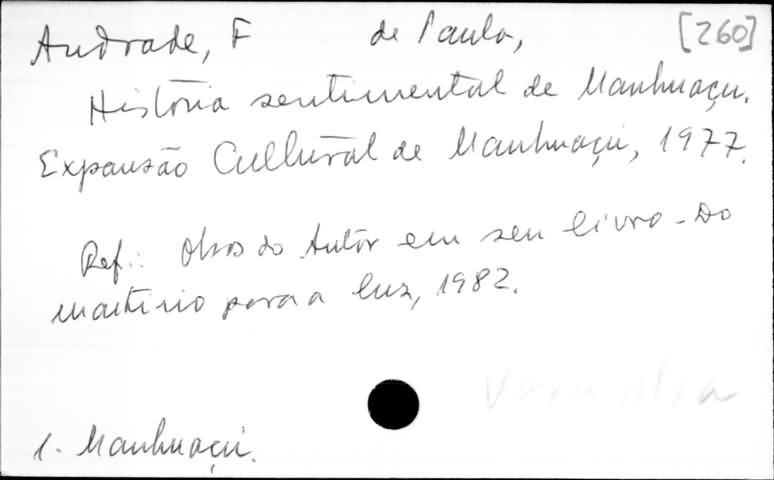 Andrade, F de Paula, [260]
História sentimental de Manhuaçu.
Expansão Cultural de Manhuaçu, 1977.
Ref.: Obras do Autor em seu livro - Do
martírio para a luz, 1982.
1. Manhuaçu.